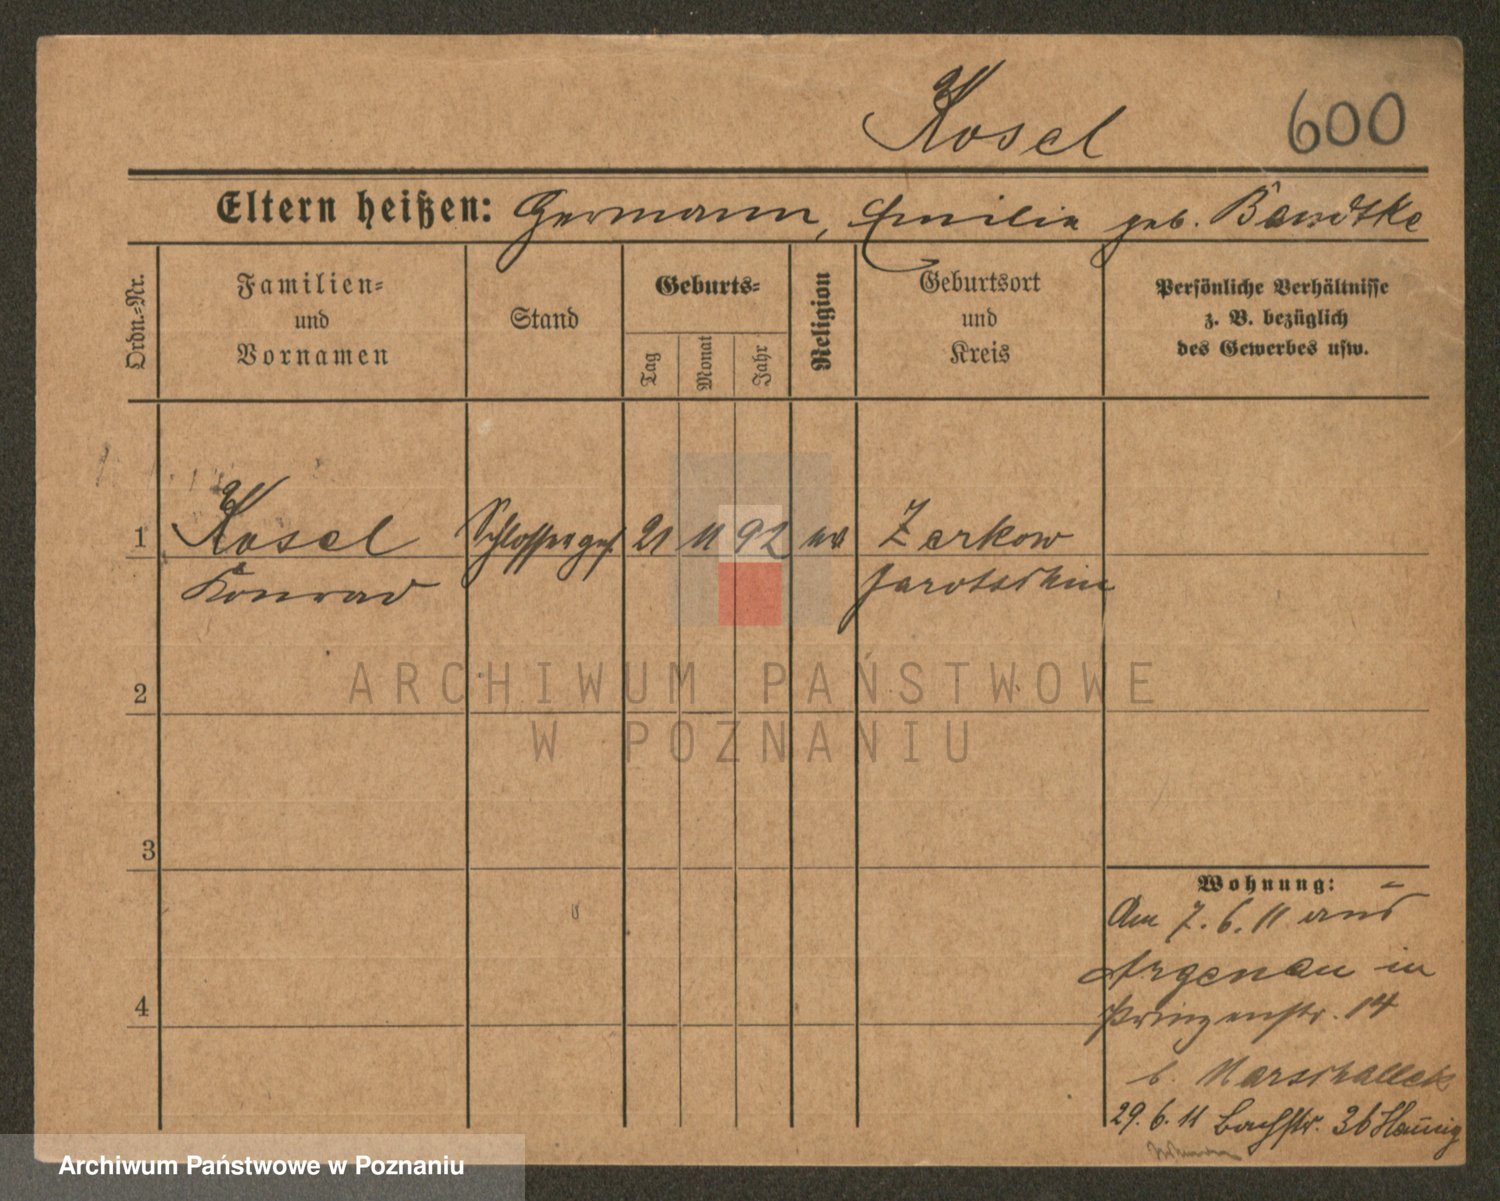 Kosel 600
Eltern heißen: Hermann, Emilie geb. Bandtke
Ordn.-Nr.
Familien-
und
Vornamen
Stand
Geburts-
Tag
Monat
Jahr
Religion
Geburtsort
und
Kreis
Persönliche Verhältnisse
z. B. bezüglich
des Gewerbes usw.
1 Kosel Schlosserges. 21 11 92 ev Zerkow
Konrad Jarotschin
2
3
4
Wohnung:
Am 7.6.11 aus
Argenau in
Prinzenstr. 14
b. Marschalleck
29.6.11 Bachstr. 36
ARCHIWUM PAŃSTWOWE
W POZNANIU
Archiwum Państwowe w Poznaniu